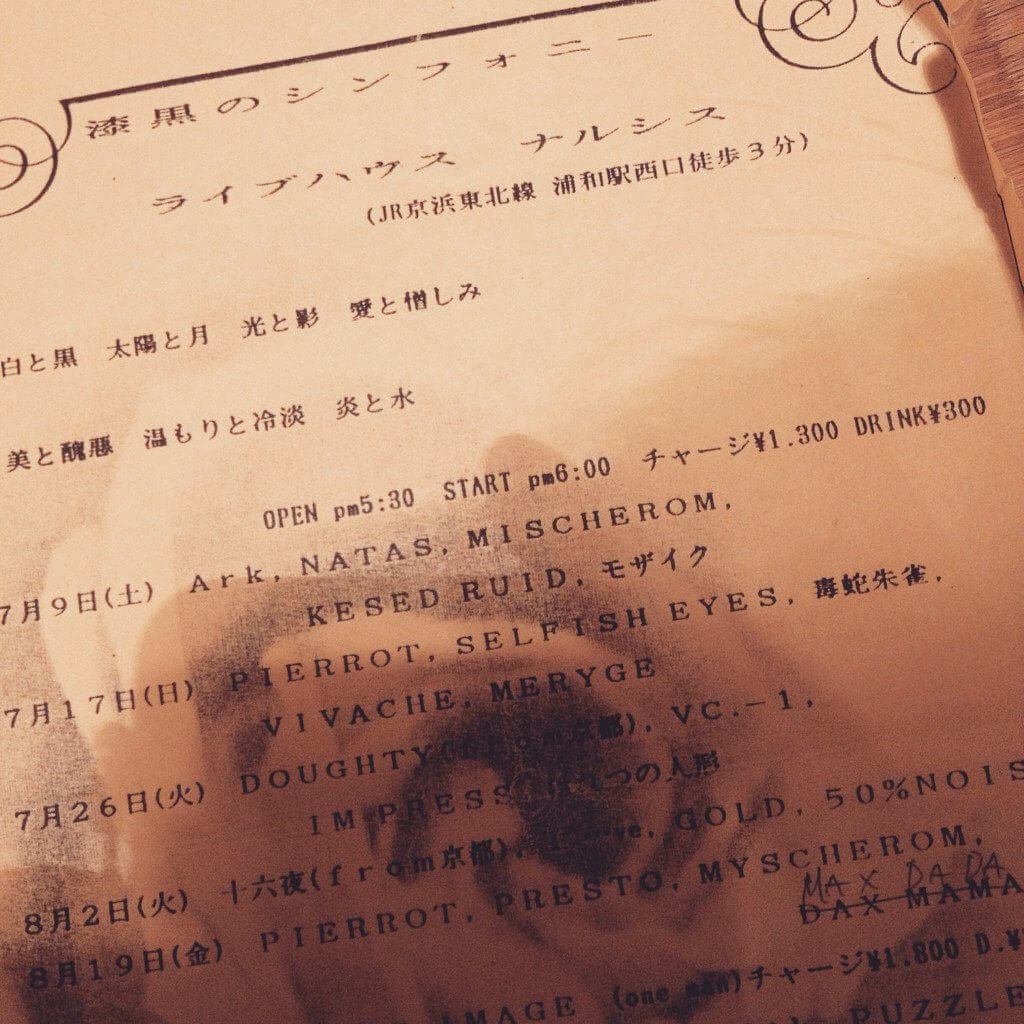 漆黒のシンフォニー
ライブハウス ナルシス
(JR京浜東北線 浦和駅西口徒歩3分)
白と黒 太陽と月 光と影 愛と憎しみ
美と醜悪 温もりと冷淡 炎と水
OPEN pm5:30 START pm6:00 チャージ¥1.300 DRINK¥300
7月9日(土) Ark, NATAS, MISCHEROM,
KESED RUID, モザイク
7月17日(日) PIERROT, SELFISH EYES, 毒蛇朱雀,
VIVACHE, MERYGE
7月26日(火) DOUGHTY(from京都), VC.-1,
IMPRESS つの人形
8月2日(火) 十六夜(from京都), GOLD, 50%NOIS
8月19日(金) PIERROT, PRESTO, MYSCHEROM,
MAX DADA
DAX MAMA
IMAGE (one man)チャージ¥1.800 D.¥
PUZZLE